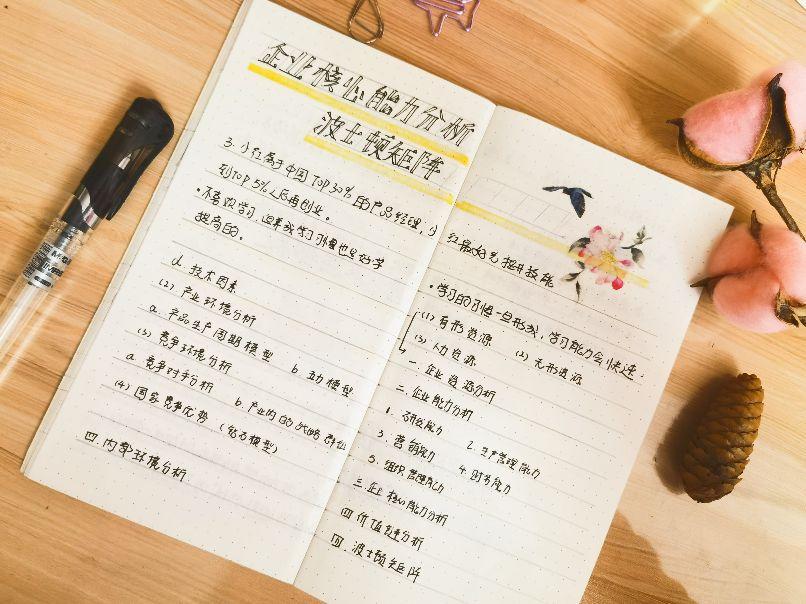 企业核心能力分析
波士顿矩阵
3. 小红属于中国TOP30%的产品经理,
到TOP5%人后再创业。
·不喜欢学习,但其实学习习惯也是好学
提高的。
d. 技术因素
(2) 产业环境分析
a. 产品生产周期模型 b. 五力模型
(3) 竞争环境分析
a. 竞争对手分析 b. 产业内的战略群组
(4) 国家竞争优势 (钻石模型)
四 内部环境分析
红最好先提升技能
·学习的习惯一旦形成,学习能力会快速
(1) 有形资源 (2) 无形资源
(3) 人力资源
一 企业资源分析
二. 企业能力分析
1. 研发能力 2. 生产管理能力
3. 营销能力 4. 财务能力
5. 组织管理能力
三. 企业核心能力分析
四 价值链分析
四. 波士顿矩阵